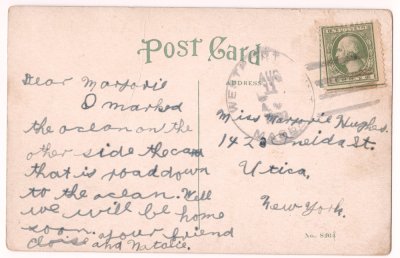 POST CARD
ADDRESS.
U.S. POSTAGE
AUG
11
MASS
Dear Marjorie
I marked
the ocean on the
other side the car
that is road down
to the ocean. Well
we will be home
soon. your friend
and Natalie.
Miss Marjorie Hughes.
1423 Oneida St.
Utica,
New York.
No.